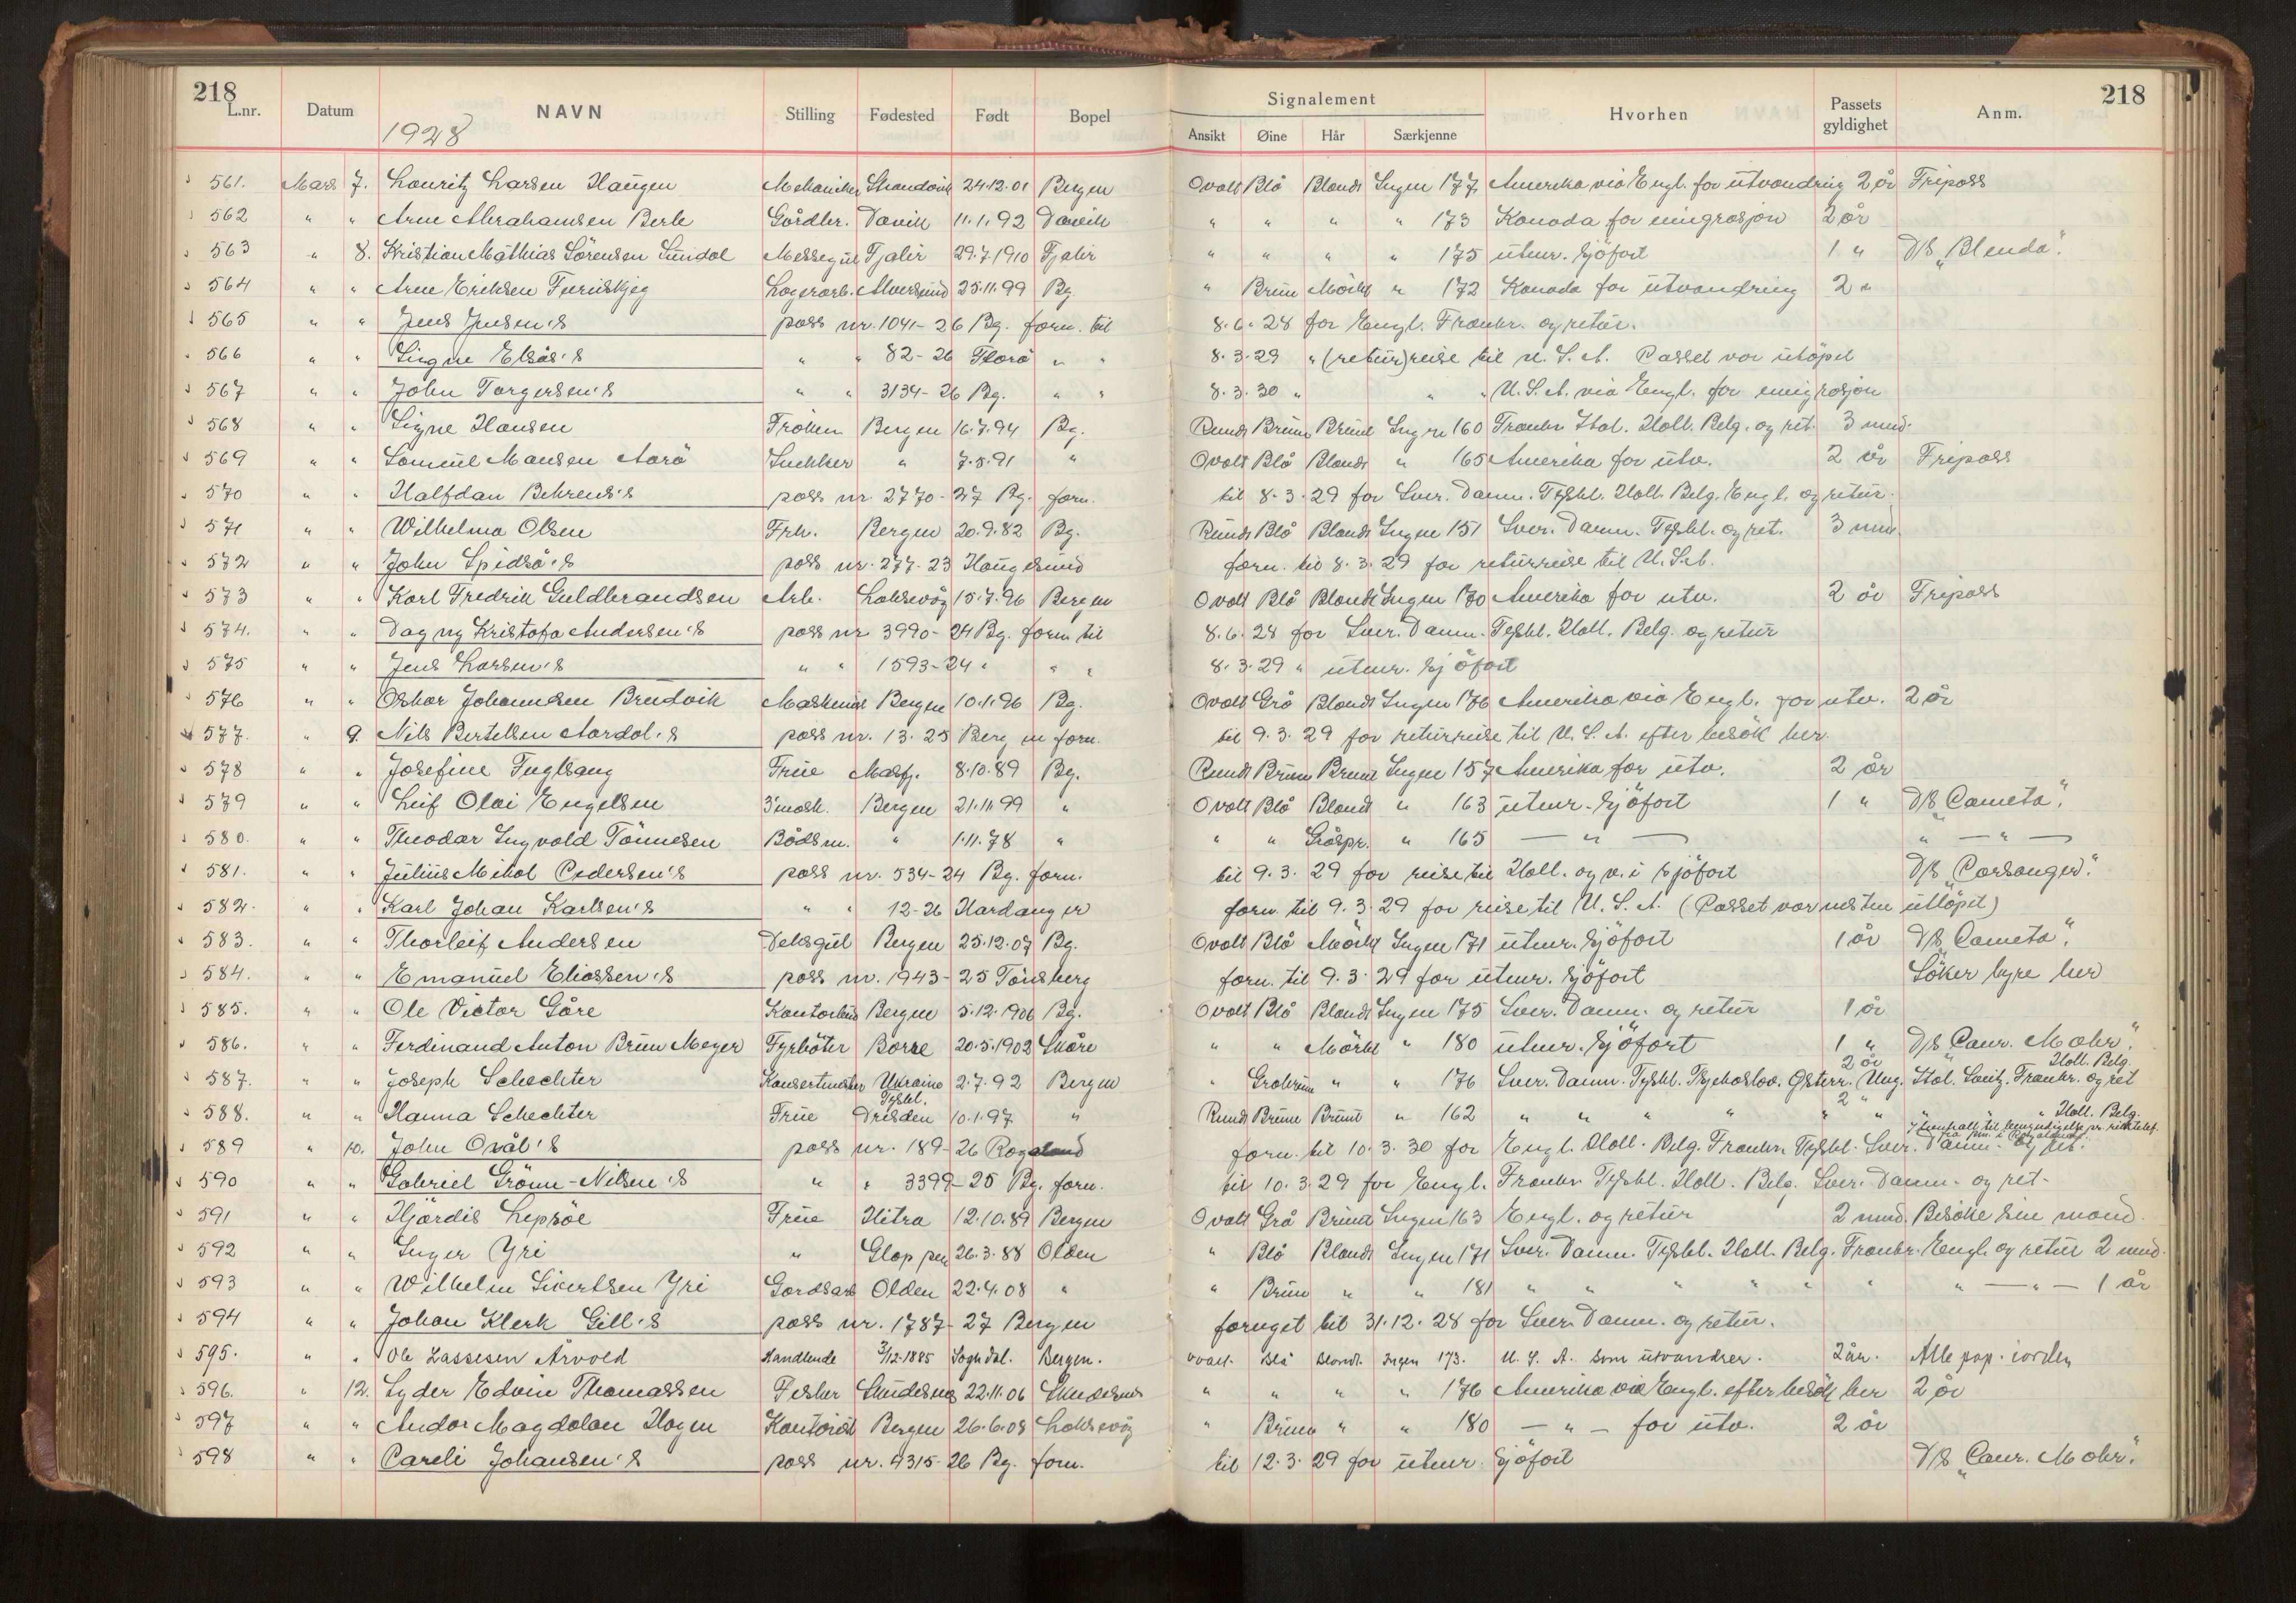 218
218
L.nr. Datum NAVN Stilling Fødested Født Bopel Signalement Hvorhen Passets gyldighet Anm.
Ansikt Øine Hår Særkjenne
1928
561. Mars 7. Lauritz Larsen Haugen Mekaniker Strandvik 24.12.01 Bergen Ovalt Blå Blondt Ingen 177 Amerika via Engl. for utvandring 2 år Fripass
562 " " Arne Abrahamsen Berle Gårdbr. Davik 11.1.92 Davik " " " " 173 Kanada for emigrasjon 2 år
563 " 8. Kristian Mathias Sørensen Sundal Messegut Fjaler 29.7.1910 Fjaler " " " " 175 utenr. sjøfart 1 " D/S "Blenda".
564 " " Arne Eriksen Lagerarb. Alversund 25.11.99 Bg. " Brun Mørkt " 172 Kanada for utvandring 2 "
565 " " Jens Jensen's pass nr. 1041-26 Bg. forn. til 8.6.28 for Engl. Frankr. og retur.
566 " " Signe Elsås's " " 82-26 Florø " " 8.3.29 " (retur)reise til U.S.A. Passet var utløpet
567 " " John Torgersen's " " 3134-26 Bg. " " 8.3.30 " " " U.S.A. via Engl. for emigrasjon
568 " " Signe Hansen Frøken Bergen 16.7.94 Bg. Rundt Brune Brunt Ingen 160 Frankr. Ital. Holl. Belg. og ret. 3 mnd.
569 " " Samuel Monsen Aarø Snekker " 7.5.91 " Ovalt Blå Blondt " 165 Amerika for utv. 2 år Fripass
570 " " Halfdan Behrens's pass nr 2770-27 Bg. forn. til 8.3.29 for Sver. Danm. Tyskl. Holl. Belg. Engl. og retur.
571 " " Wilhelma Olsen Frk. Bergen 20.9.82 Bg. Rundt Blå Blondt Ingen 151 Sver. Danm. Tyskl. og ret. 3 mnd.
572 " " John Spidsø's pass nr. 277-23 Haugesund forn. til 8.3.29 for returreise til U.S.A.
573 " " Karl Fredrik Guldbrandsen Arb. Laksevåg 15.7.96 Bergen Ovalt Blå Blondt Ingen 170 Amerika for utv. 2 år Fripass
574. " " Dagny Kristofa Andersen's pass nr 3990-24 Bg. forn. til 8.6.28 for Sver. Danm. Tyskl. Holl. Belg. og retur
575 " " Jens Larsen's " " 1593-24 " " " 8.3.29 " utenr. sjøfart
576 " " Oskar Johannesen Brudvik Maskinist Bergen 10.1.96 Bg. Ovalt Grå Blondt Ingen 176 Amerika via Engl. for utv. 2 år
577. " 9. Nils Bertelsen Aardal's pass nr. 13.25 Bergen forn. til 9.3.29 for returreise til U.S.A. efter besøk her.
578 " " Josefine Fuglsang Frue Masfj. 8.10.89 Bg. Rundt Brune Brunt Ingen 157 Amerika for utv. 2 år
579 " " Leif Olai Engelsen 3'mask. Bergen 21.11.99 " Ovalt Blå Blondt " 163 utenr. sjøfart 1 " D/S "Cometa".
580. " " Theodor Ingvald Tønnesen Bådsm. " 1.11.78 " " " Gråspr. " 165 — " — " — " —
581. " " Julius Mikal Pedersen's pass nr. 534-24 Bg. forn. til 9.3.29 for reise til Holl. og v. i sjøfart D/S "Porsanger".
582. " " Karl Johan Karlsen's " " 12-26 Hardanger forn til 9.3.29 for reise til U.S.A. (Passet var nesten utløpet)
583. " " Thorleif Andersen Deksgut Bergen 25.12.07 Bg. Ovalt Blå Mørkt Ingen 171 utenr. sjøfart 1 år D/S "Cometa".
584. " " Emanuel Eliassen's pass nr. 1943-25 Tønsberg forn. til 9.3.29 for utenr. sjøfart Søker hyre her
585. " " Ole Victor Gåre Bergen 5.12.1906 Bg. Ovalt Blå Blondt Ingen 175 Sver. Danm. og retur 1 år
586. " " Ferdinand Anton Bruun Meyer Fyrbøter Borre 20.5.1902 Skåre " " Mørkt " 180 utenr. sjøfart 1 " D/S "Conr. Mohr".
587. " " Joseph Schechter Konsertmester Ukraine 2.7.92 Bergen " Gråbrune " " 176 Sver. Danm. Tyskl. Tsjekoslov. Østerr. Ung. 2 år Ital. Sveitz. Frankr. Holl. Belg. og ret
588. " " Hanna Schechter Frue Dresden Tyskl. 10.1.97 " Rundt Brune Brunt " 162 " " " " " " 2 " " Holl. Belg.
589 " 10. John Ovål's pass nr. 189-26 Rogaland forn. til 10.3.30 for Engl. Holl. Belg. Frankr. Tyskl. Sver. Danm. og ret.
590 " " Gabriel Grønn-Nilsen's " " 3399-25 Bg. forn. til 10.3.29 for Engl. Frankr. Tyskl. Holl. Belg. Sver. Danm. og ret.
591 " " Hjørdis Lepsøe Frue Hitra 12.10.89 Bergen Ovalt Grå Brunt Ingen 163 Engl. og retur 2 mnd. Besøke sin mand.
592 " " Inger Yri " Gloppen 26.3.88 Olden " Blå Blondt Ingen 171 Sver. Danm. Tyskl. Holl. Belg. Frankr. Engl. og retur 2 mnd.
593 " " Wilhelm Sivertsen Yri Gardsarb Olden 22.4.08 " " Brune " " 181 " " " " " " " — " — 1 år
594 " " Johan Klerk Gill's pass nr. 1787-27 Bergen fornyet til 31.12.28 for Sver. Danm. og retur.
595. " " Ole Lassesen Årvold Handlende 3/12-1885 Sogndal. Bergen. Ovalt. Blå Blondt. Ingen 173. U.S.A. som utvandrer. 2 år. Alle pap. i orden
596. " 12. Syder Edvin Thomassen Fisker Skudesnes 22.11.06 Skudesnes " " " " 176 Amerika via Engl. efter besøk her 2 år
597 " " Andor Magdalon Hagen Kontorist Bergen 26.6.08 Laksevåg " Brune " " 180 — " — for utv. 2 år
598 " " Careli Johansen's pass nr. 4315-26 Bg. forn. til 12.3.29 for utenr. sjøfart D/S "Conr. Mohr".